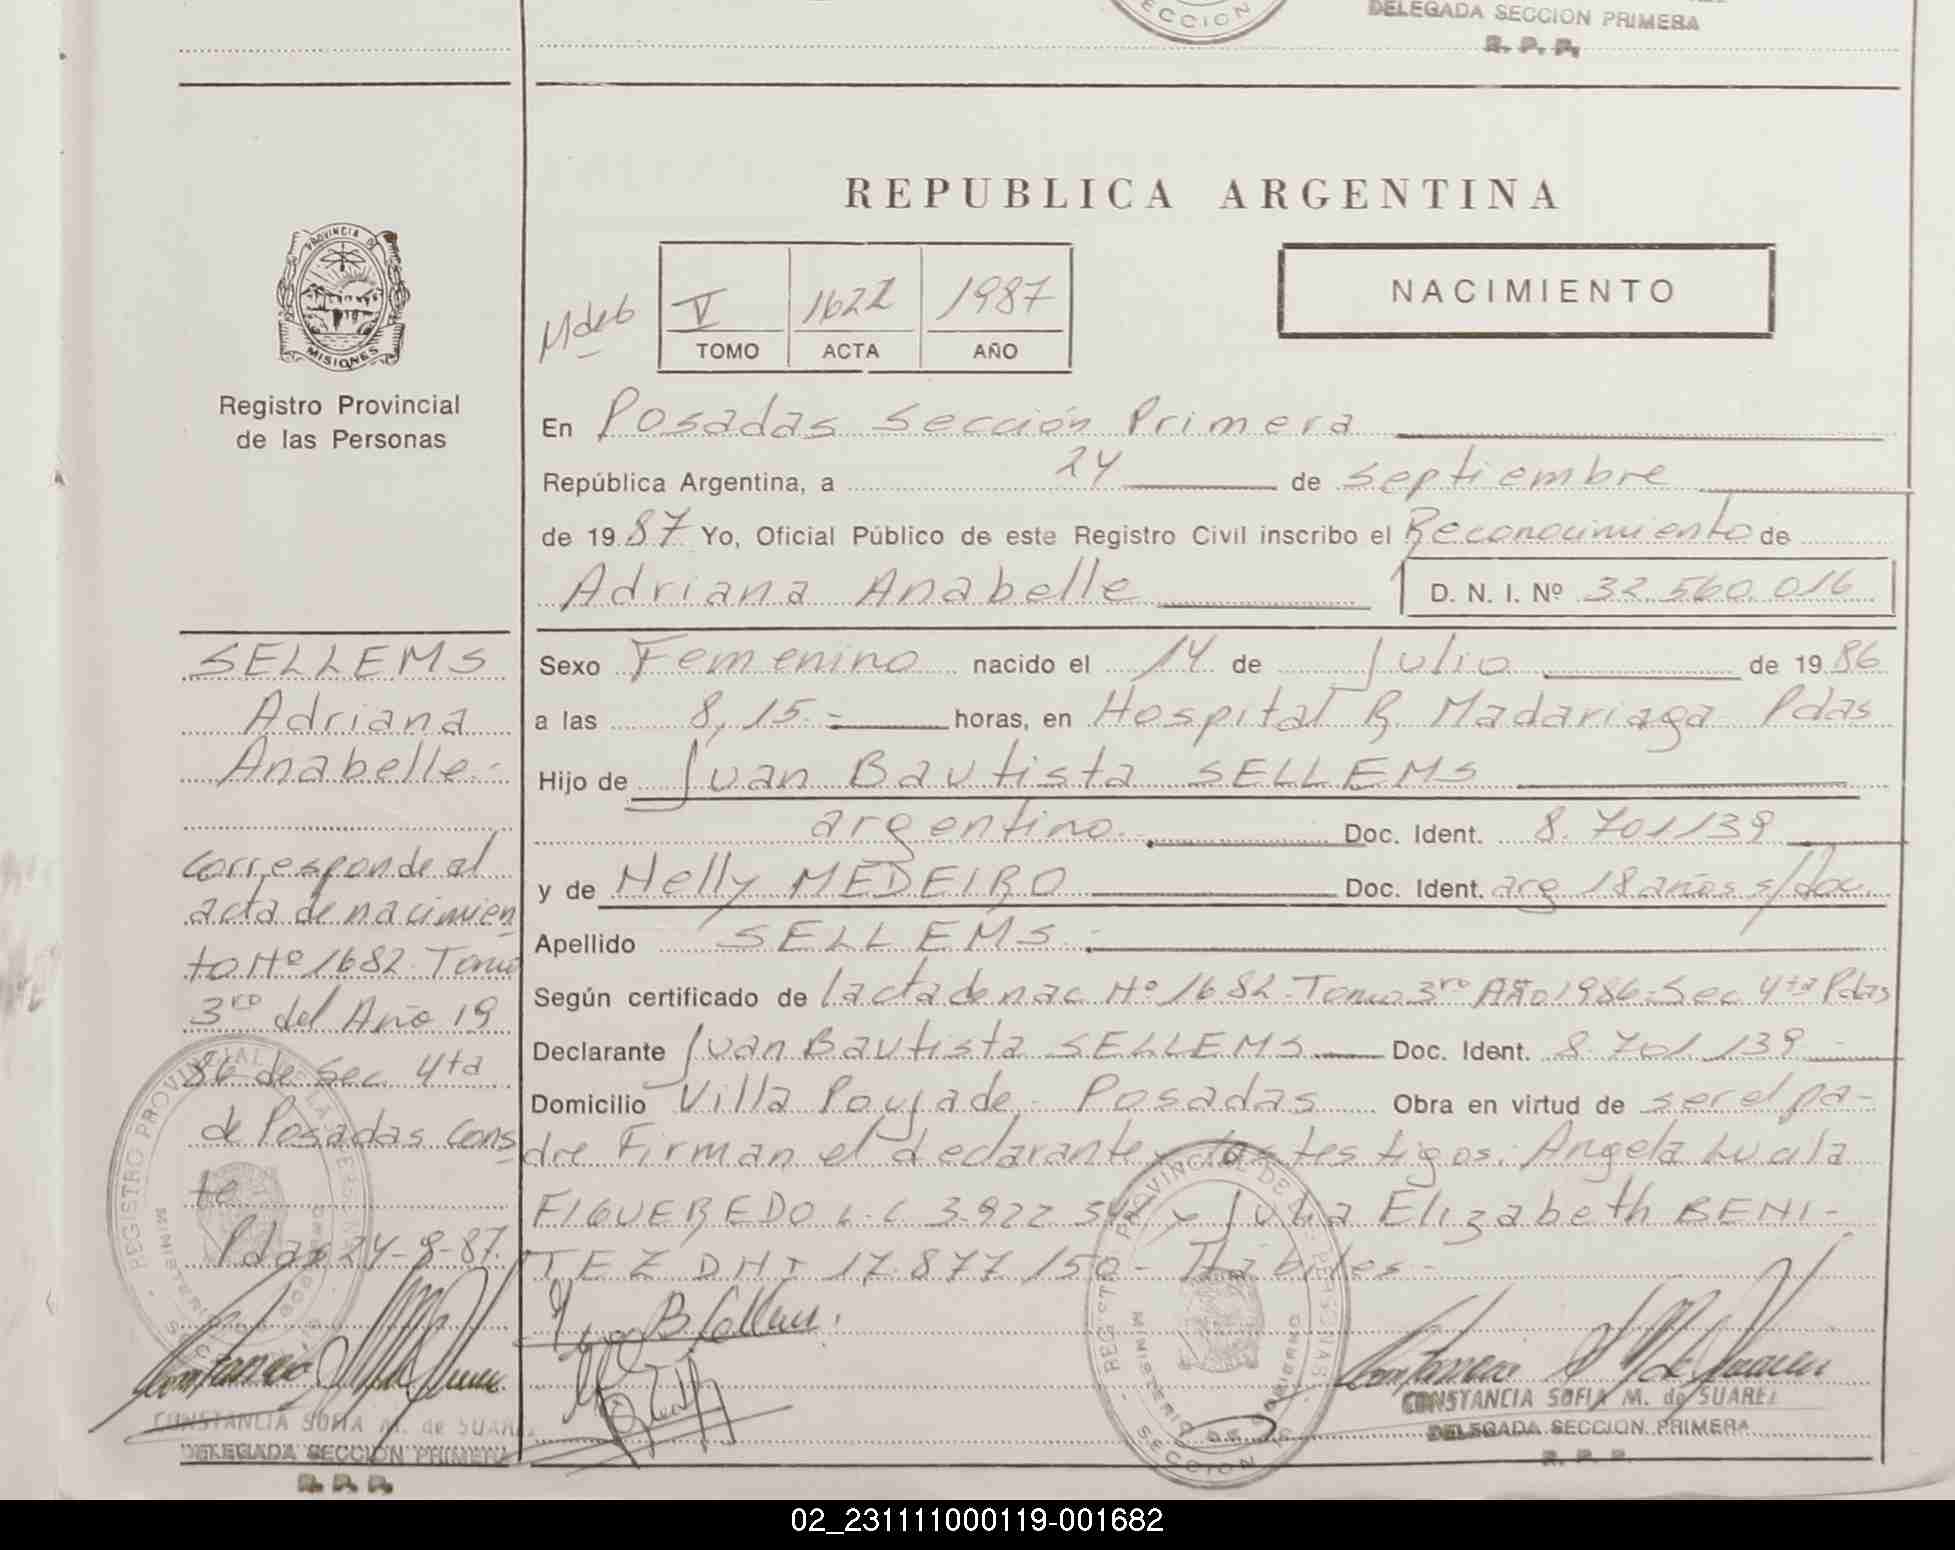 SECCION
DELEGADA SECCION PRIMERA
R. P. P.
REPUBLICA ARGENTINA
PROVINCIA DE
MISIONES
Registro Provincial
de las Personas
V 1622 1987
TOMO ACTA AÑO
NACIMIENTO
En Posadas Sección Primera
República Argentina, a 24 de septiembre
de 1987 Yo, Oficial Público de este Registro Civil inscribo el Reconocimiento de
Adriana Anabelle D. N. I. Nº 32.560.016
Sexo Femenino nacido el 14 de Julio de 1986
a las 8,15.- horas, en Hospital R. Madariaga Pdas
Hijo de Juan Bautista SELLEMS
argentino. Doc. Ident. 8.701.139
y de Nelly MEDEIRO Doc. Ident. arg 18 años s/doc.
Apellido SELLEMS.-
Según certificado de l'acta de nac Nº 1682-Tomo 3ro Año 1986-Sec 4ta Pdas
Declarante Juan Bautista SELLEMS Doc. Ident. 8.701.139
Domicilio Villa Poujade - Posadas Obra en virtud de ser el pa-
dre Firman el declarante y los testigos: Angela Lucila
FIGUEREDO L.C 3.922.342 y Julia Elizabeth BENI-
TEZ DNI 17.877.150- Hábiles-
SELLEMS
Adriana
Anabelle.-
Corresponde al
acta de nacimien
to Nº 1682 Tomo
3ro del Año 19
86 de Sec. 4ta
de Posadas Cons
te
Pdas 24-9-87.
CONSTANCIA SOFIA M. de SUAREZ
DELEGADA SECCION PRIMERA
R. P. P.
CONSTANCIA SOFIA M. de SUAREZ
DELEGADA SECCION PRIMERA
R. P. P.
REGISTRO PROVINCIAL DE LAS PERSONAS
MINISTERIO DE GOBIERNO
REGISTRO PROVINCIAL DE LAS PERSONAS
MINISTERIO DE GOBIERNO
SECCION
02_231111000119-001682